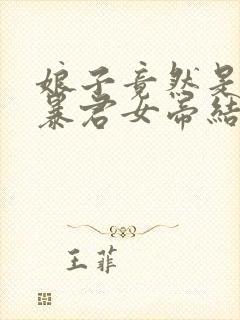 娘子竟然是
暴君女帝结
王菲